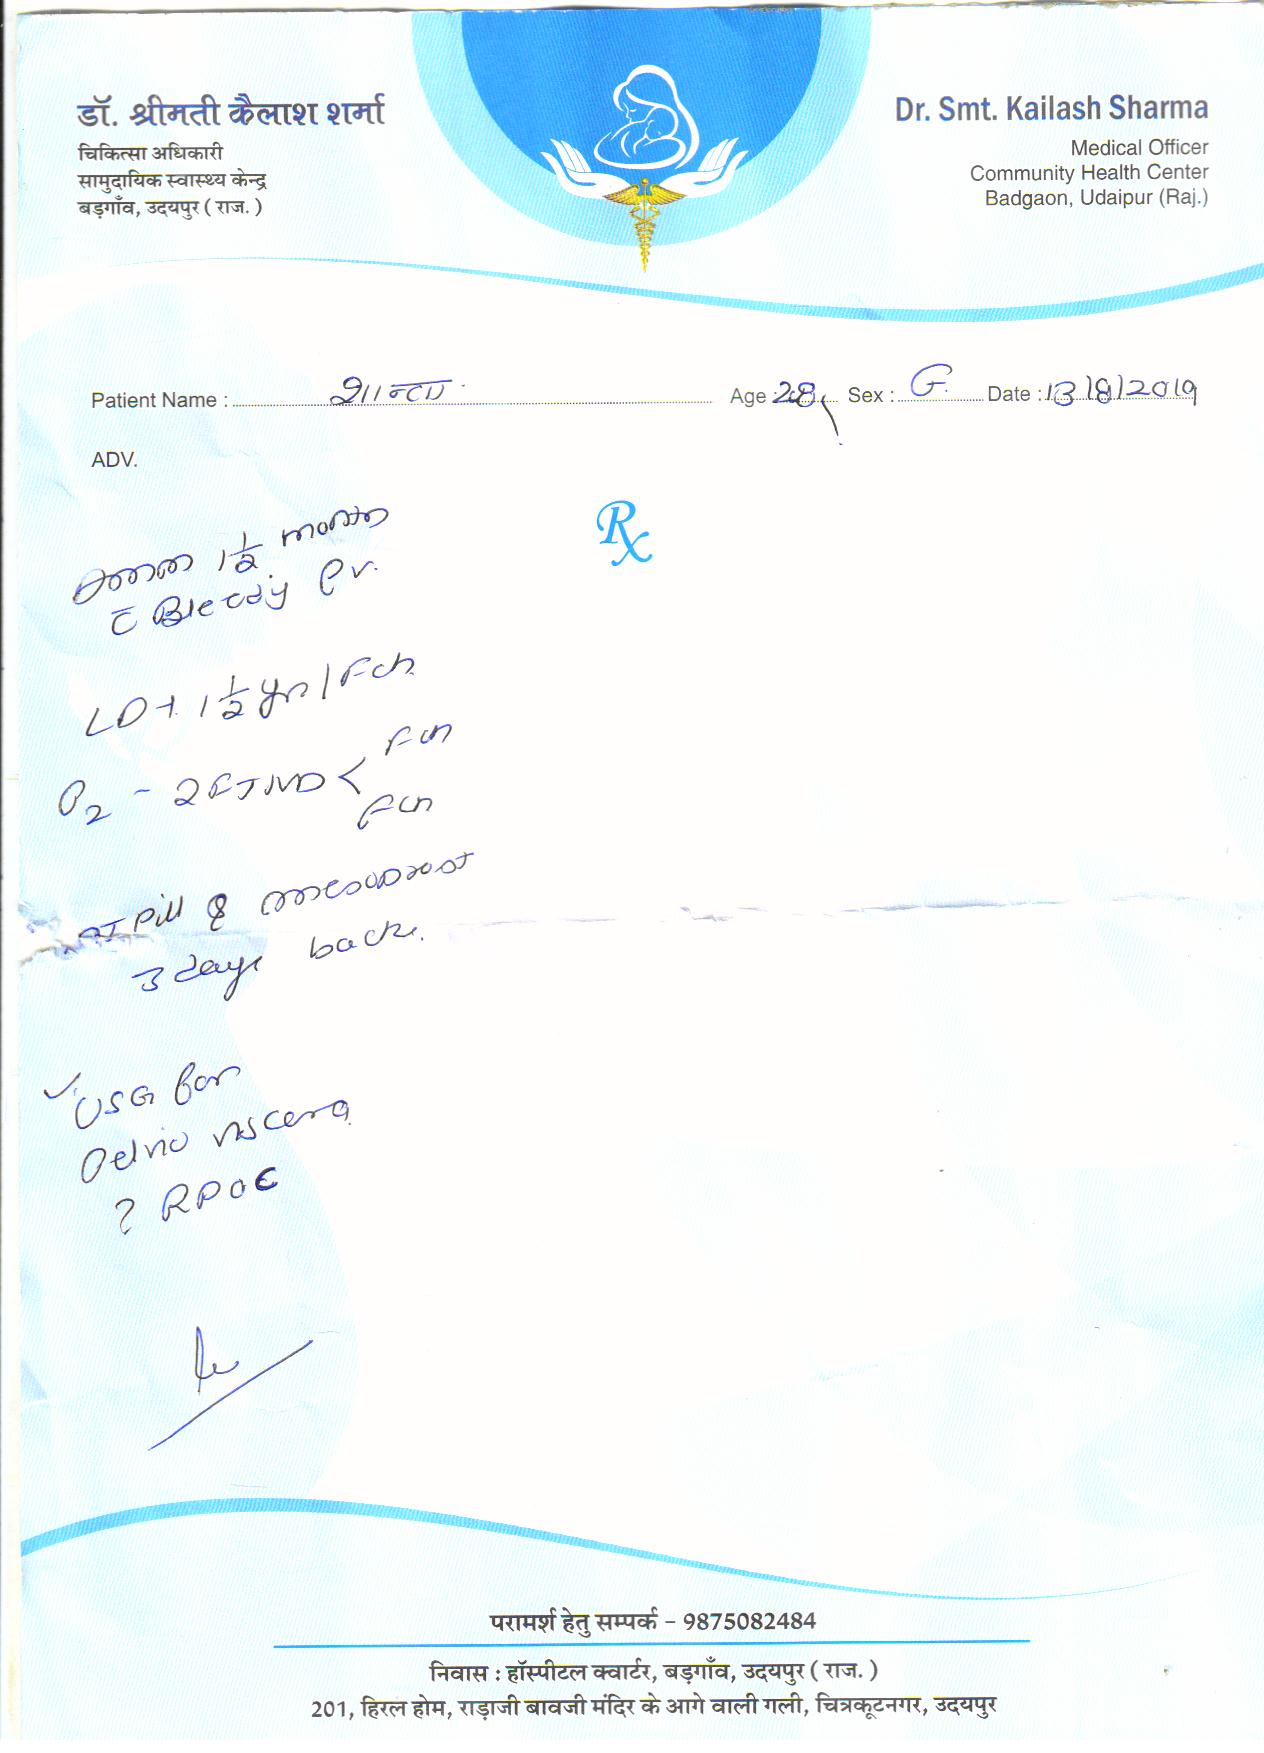 डॉ. श्रीमती कैलाश शर्मा
चिकित्सा अधिकारी
सामुदायिक स्वास्थ्य केन्द्र
बड़गाँव, उदयपुर ( राज. )
Dr. Smt. Kailash Sharma
Medical Officer
Community Health Center
Badgaon, Udaipur (Raj.)
Patient Name : शान्ता Age : 28 Sex : Date : 13/8/2019
ADV.
Rx
1 1/2 month
c̄ Bleedy Pv.
LD + 1 1/2 yr / Fch
P2 - 2 FTND < Fch
Fch
pill & mesoprost
3 days back.
✓ USG for
Pelvic viscera
? RPOC
परामर्श हेतु सम्पर्क - 9875082484
निवास : हॉस्पीटल क्वार्टर, बड़गाँव, उदयपुर ( राज. )
201, हिरल होम, राड़ाजी बावजी मंदिर के आगे वाली गली, चित्रकूटनगर, उदयपुर